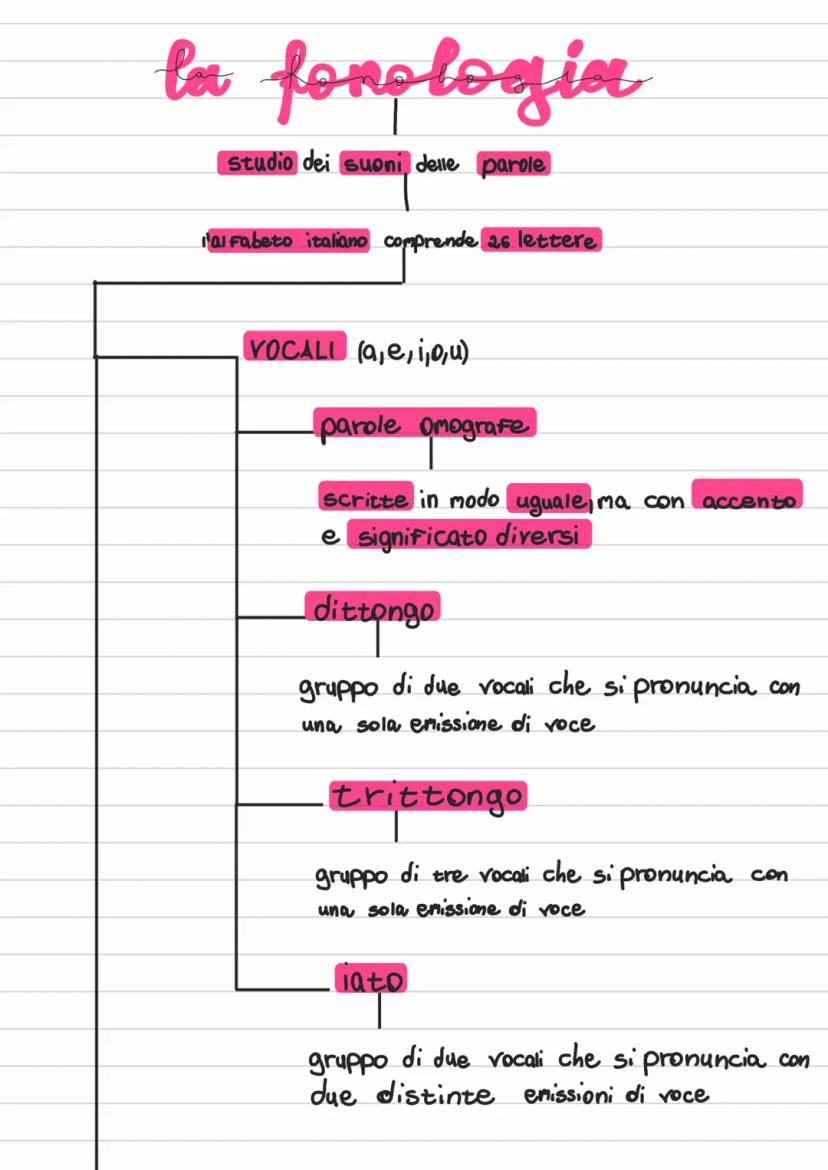 la fonologia
studio dei suoni delle parole
l'alfabeto italiano comprende 26 lettere
VOCALI (a,e,i,o,u)
parole omografe
scritte in modo uguale, ma con accento
e significato diversi
dittongo
gruppo di due vocali che si pronuncia con
una sola emissione di voce
trittongo
gruppo di tre vocali che si pronuncia con
una sola emissione di voce
iato
gruppo di due vocali che si pronuncia con
due distinte emissioni di voce